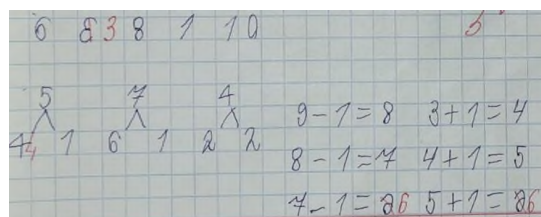 6 8 3 8 1 10 5
5 7 4
4 4 1 6 1 2 2
9-1=8 3+1=4
8-1=7 4+1=5
7-1=26 5+1=26